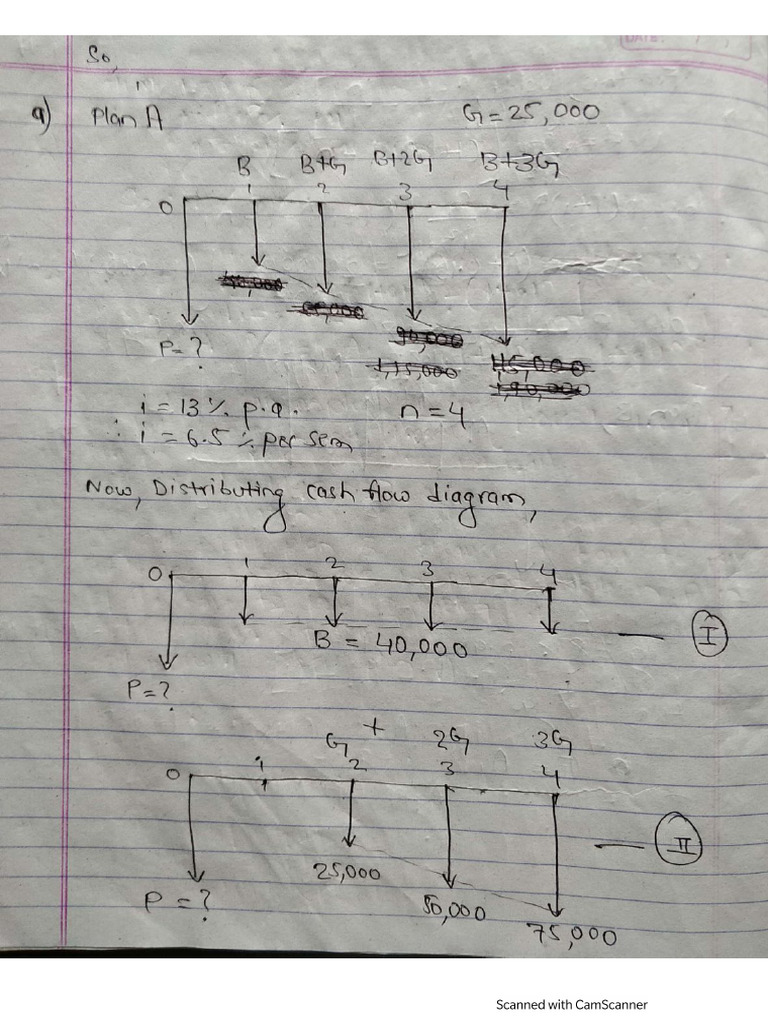 So,
a) Plan A G = 25,000
B B+G B+2G B+3G
0 1 2 3 4
90,000
P = ? 1,15,000 1,90,000
i = 13 % p.a. n = 4
∴ i = 6.5 % per sem
Now, Distributing cash flow diagram,
0 1 2 3 4
B = 40,000 I
P = ?
+
G 2G 3G
0 1 2 3 4
II
25,000
P = ? 50,000
75,000
Scanned with CamScanner